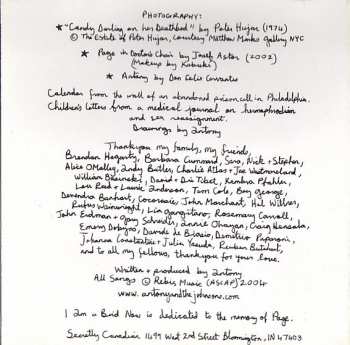 PHOTOGRAPHY:
* "Candy Darling on her Deathbed" by Peter Hujar (1974)
© The Estate of Peter Hujar, courtesy Matthew Marks Gallery NYC
* Page in Doctor's Chair by Josef Astor (2002)
(Makeup by Kabuki)
* Antony by Don Felix Cervantes
Calendar from the wall of an abandoned prison cell in Philadelphia.
Children's letters from a medical journal on hermaphrodism
and sex reassignment.
Drawings by Antony
Thank you my family, my friends,
Brendan Hagerty, Barbara Cummard, Sara, Nick + Stephen,
Alice O'Malley, Andy Butler, Charlie Atlas + Joe Westmoreland,
William Basinski, David + Dis Tibet, Kembra Pfahler,
Lou Reed + Laurie Anderson, Tom Cole, Boy George,
Devendra Banhart, Cocorosie, John Marchant, Hal Willner,
Rufus Wainwright, Lia Gangitano, Rosemary Carroll,
John Erdman + Gary Schneider, Annie Ohayon, Craig Hensala,
Emery Dobyns, Davide de Blasio, Demetrio Paparoni,
Johanna Constantine + Julia Yasuda, Reuben Butchart,
and to all my fellows, thank you for your love.
Written + produced by Antony
All Songs © Rebis Music (ASCAP) 2004
www.antonyandthejohnsons.com
I am a Bird Now is dedicated to the memory of Page.
Secretly Canadian 1499 West 2nd Street Bloomington, IN 47403